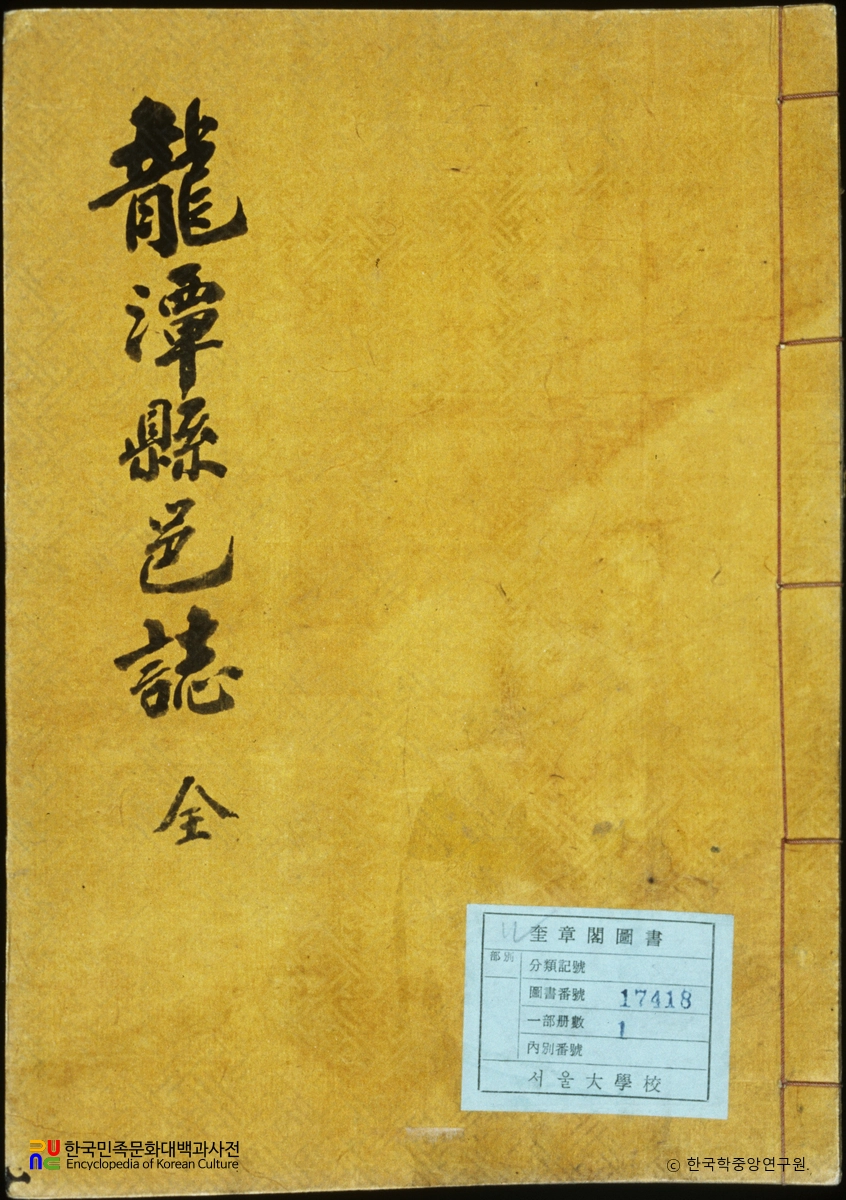 龍潭縣邑誌 全
奎章閣圖書
部別
分類記號
圖書番號 17418
一部册數 1
內別番號
서울大學校
한국민족문화대백과사전
Encyclopedia of Korean Culture
© 한국학중앙연구원.